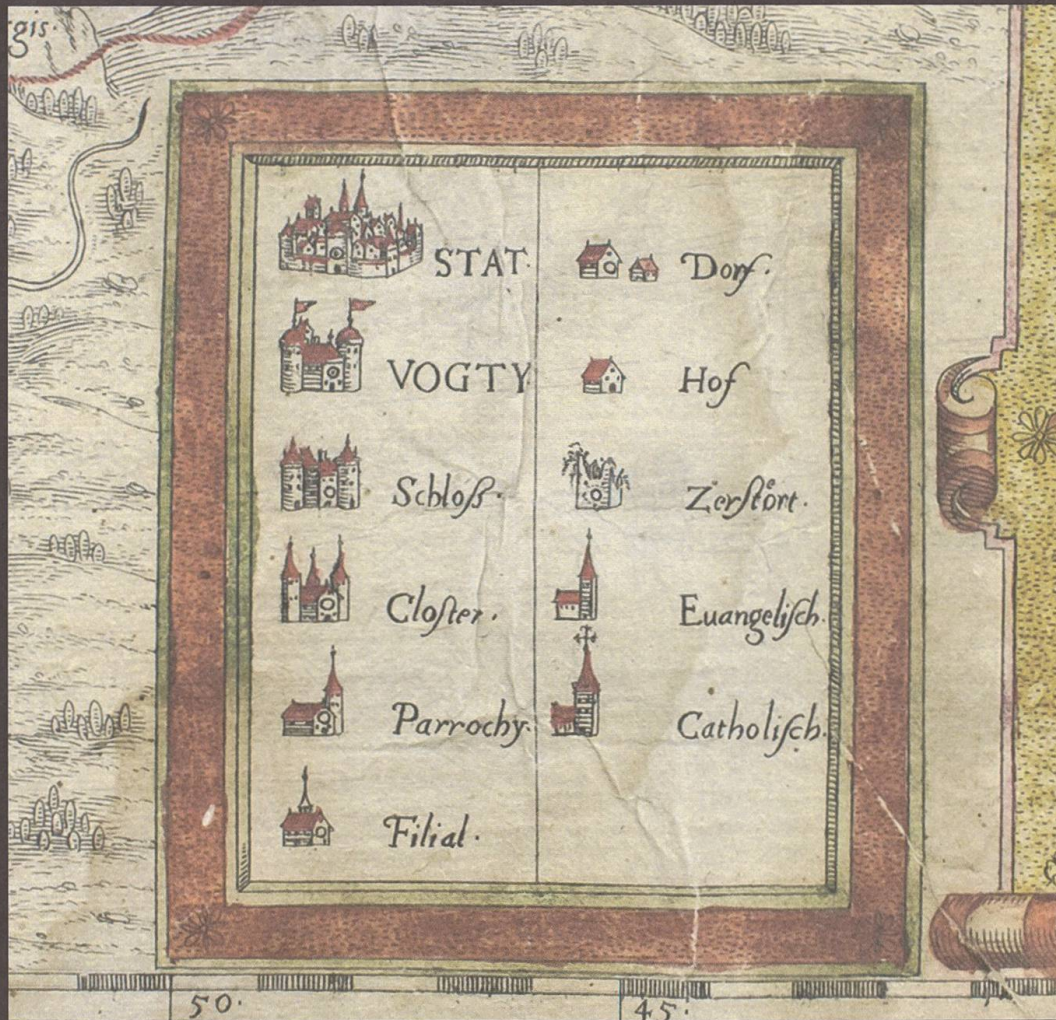 gis.
STAT.
VOGTY
Schloß.
Closter.
Parrochy.
Filial.
Dorf.
Hof
Zerstoͤrt.
Euangelisch.
Catholisch.
50.
45.